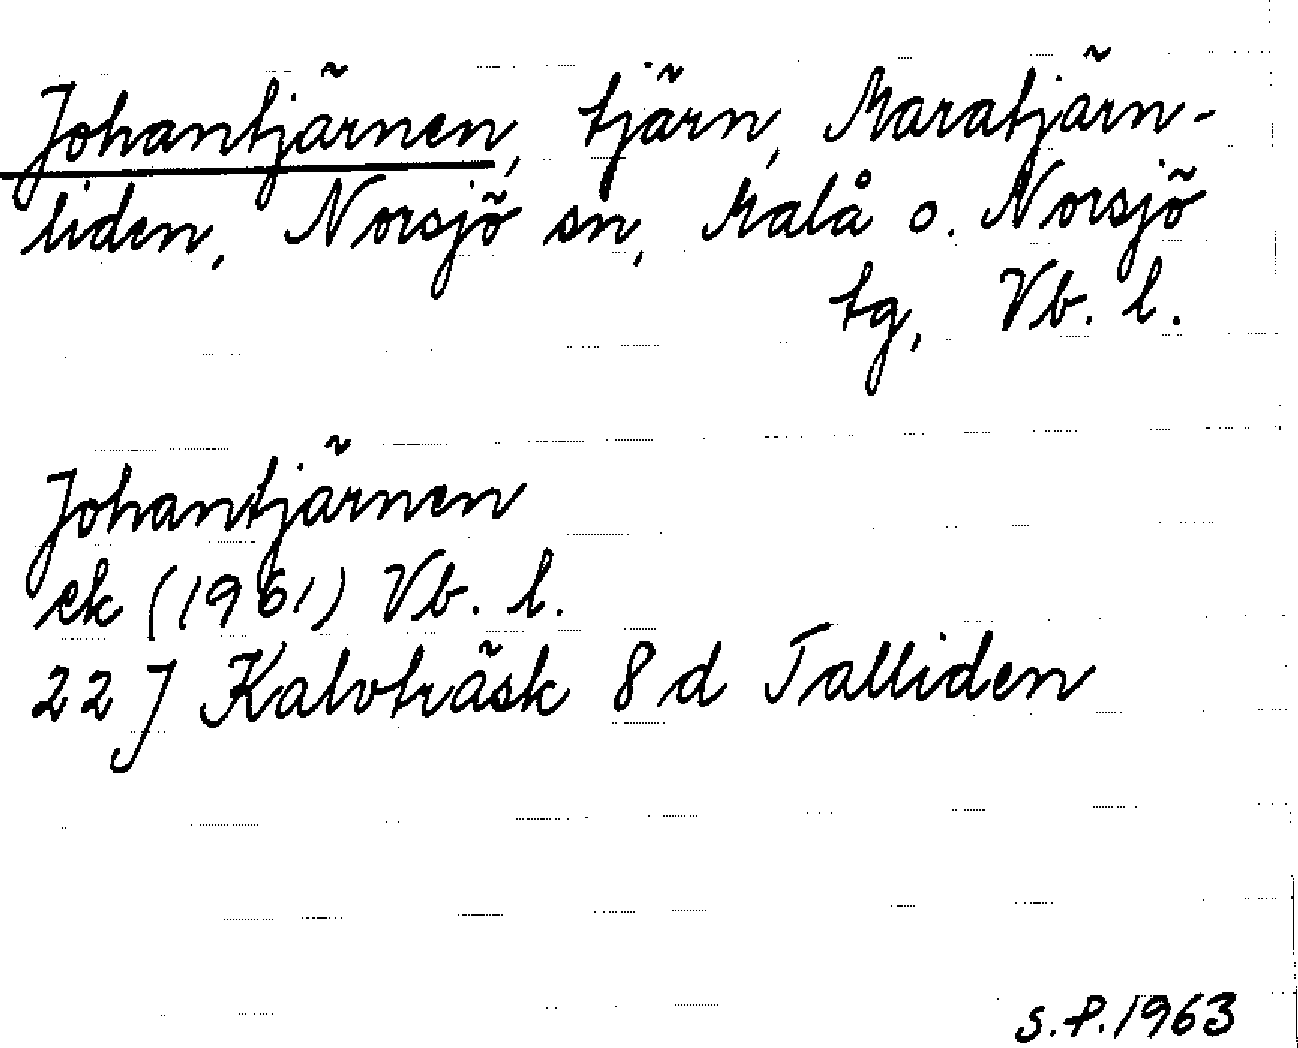 Johantjärnen, tjärn, Maratjärn-
liden, Norsjö sn, Malå o. Norsjö
tg, Vb. l.
Johantjärnen
ek (1961) Vb. l.
22 J Kalvträsk 8 d Talliden
S.P. 1963